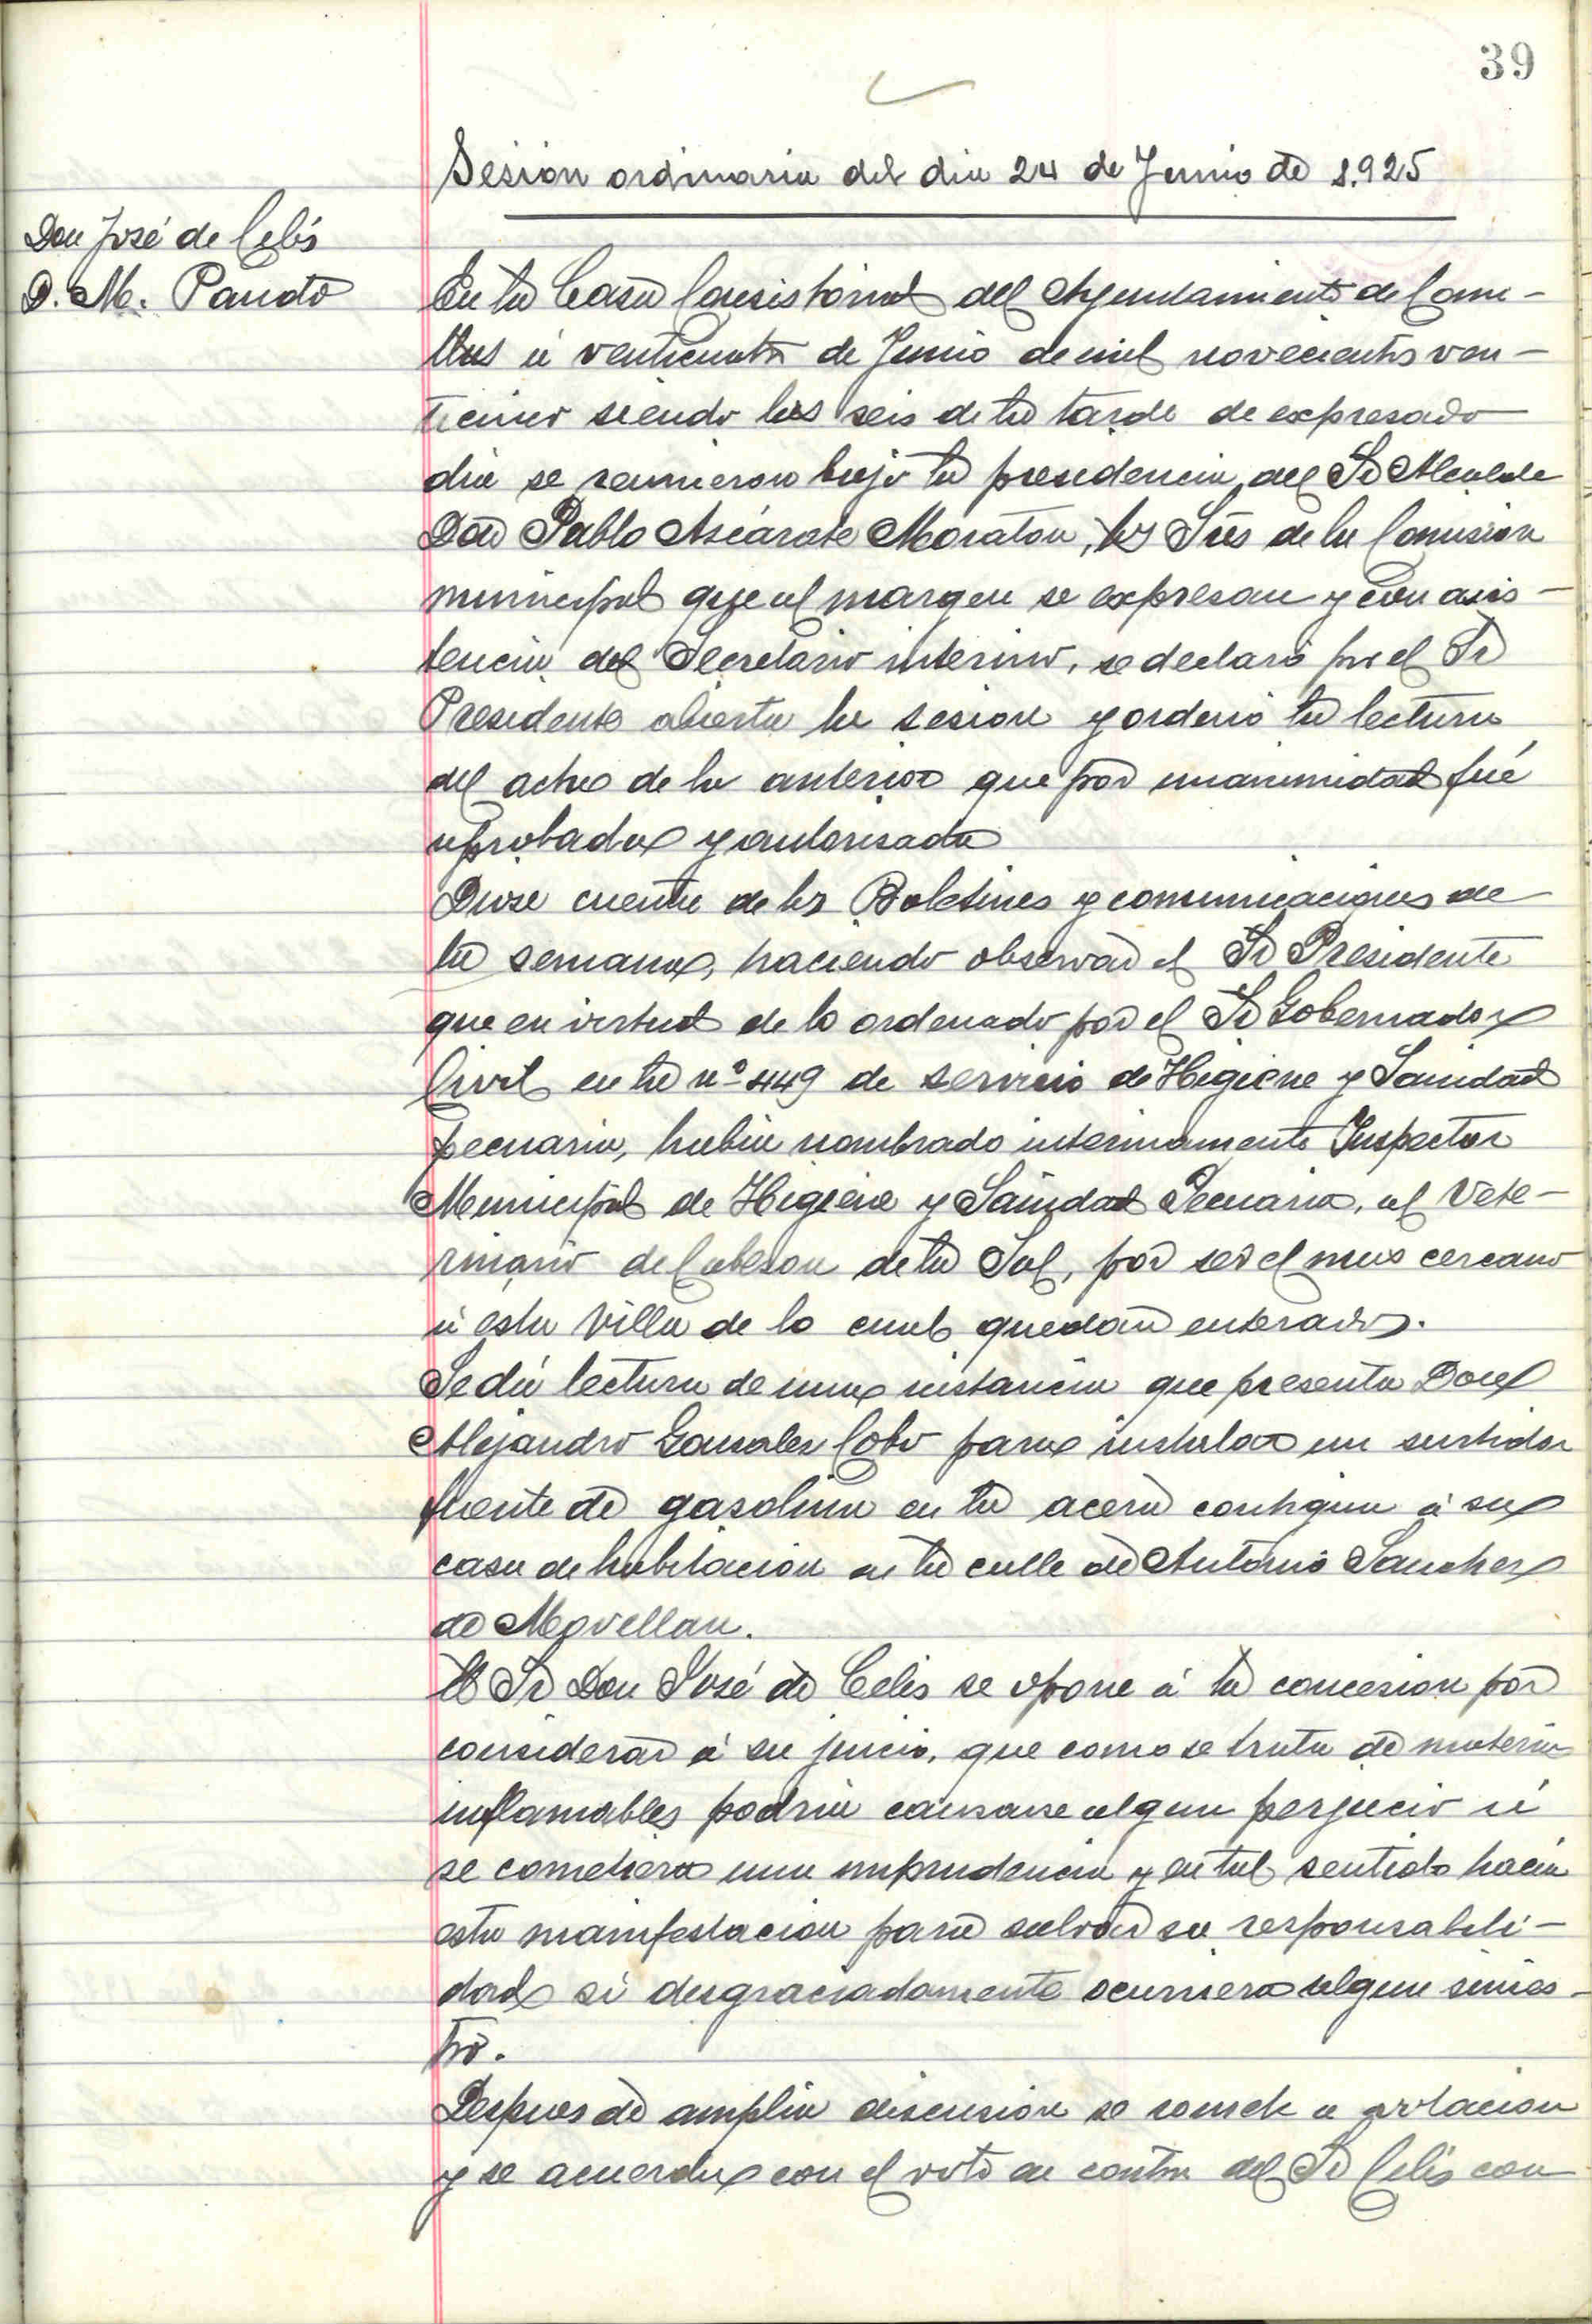 39
Sesion ordinaria del dia 24 de Junio de 1.925
Don José de Celis
D. M. Pando
En la Casa Consistorial del Ayuntamiento de Comi-
llas á venticuatro de Junio de mil novecientos ven-
ticinco siendo las seis de la tarde de expresado
dia se reunieron bajo la presidencia del Sr Alcalde
Don Pablo Azcárate Moraton, los Sres de la Comision
municipal que al margen se expresan y con asis-
tencia del Secretario interino, se declaró por el Sr
Presidente abierta la sesion y ordenó la lectura
del acta de la anterior que por unanimidad fué
aprobada y autorisada
Diose cuenta de los Boletines y comunicaciones de
la semana, haciendo observar el Sr Presidente
que en virtud de lo ordenado por el Sr Gobernador
Civil en la nº 449 de servicio de Higiene y Sanidad
pecuaria, habia nombrado interinamente Inspector
Municipal de Higiene y Sanidad Pecuaria, al Vete-
rinario de Cabeson de la Sal, por ser el mas cercano
á ésta Villa de lo cual quedan enterados.
Se dá lectura de una instancia que presenta Don
Alejandro Gonsales Cobo para instalar un surtidor
fuente de gasolina en la acera contigua á su
casa de habitacion en la calle de Antonio Sanches
de Movellan.
El Sr Don José de Celis se opone á la concesion por
considerar á su juicio, que como se trata de materia
inflamables podria causarse algun perjucio si
se cometiera una imprudencia y en tal sentido hacia
esta manifestacion para salvar su responsabili-
dad si desgraciadamente ocurriera algun sinies-
tro.
Despues de amplia discusion se somete a votacion
y se acuerda con el voto en contra del Sr Celis con